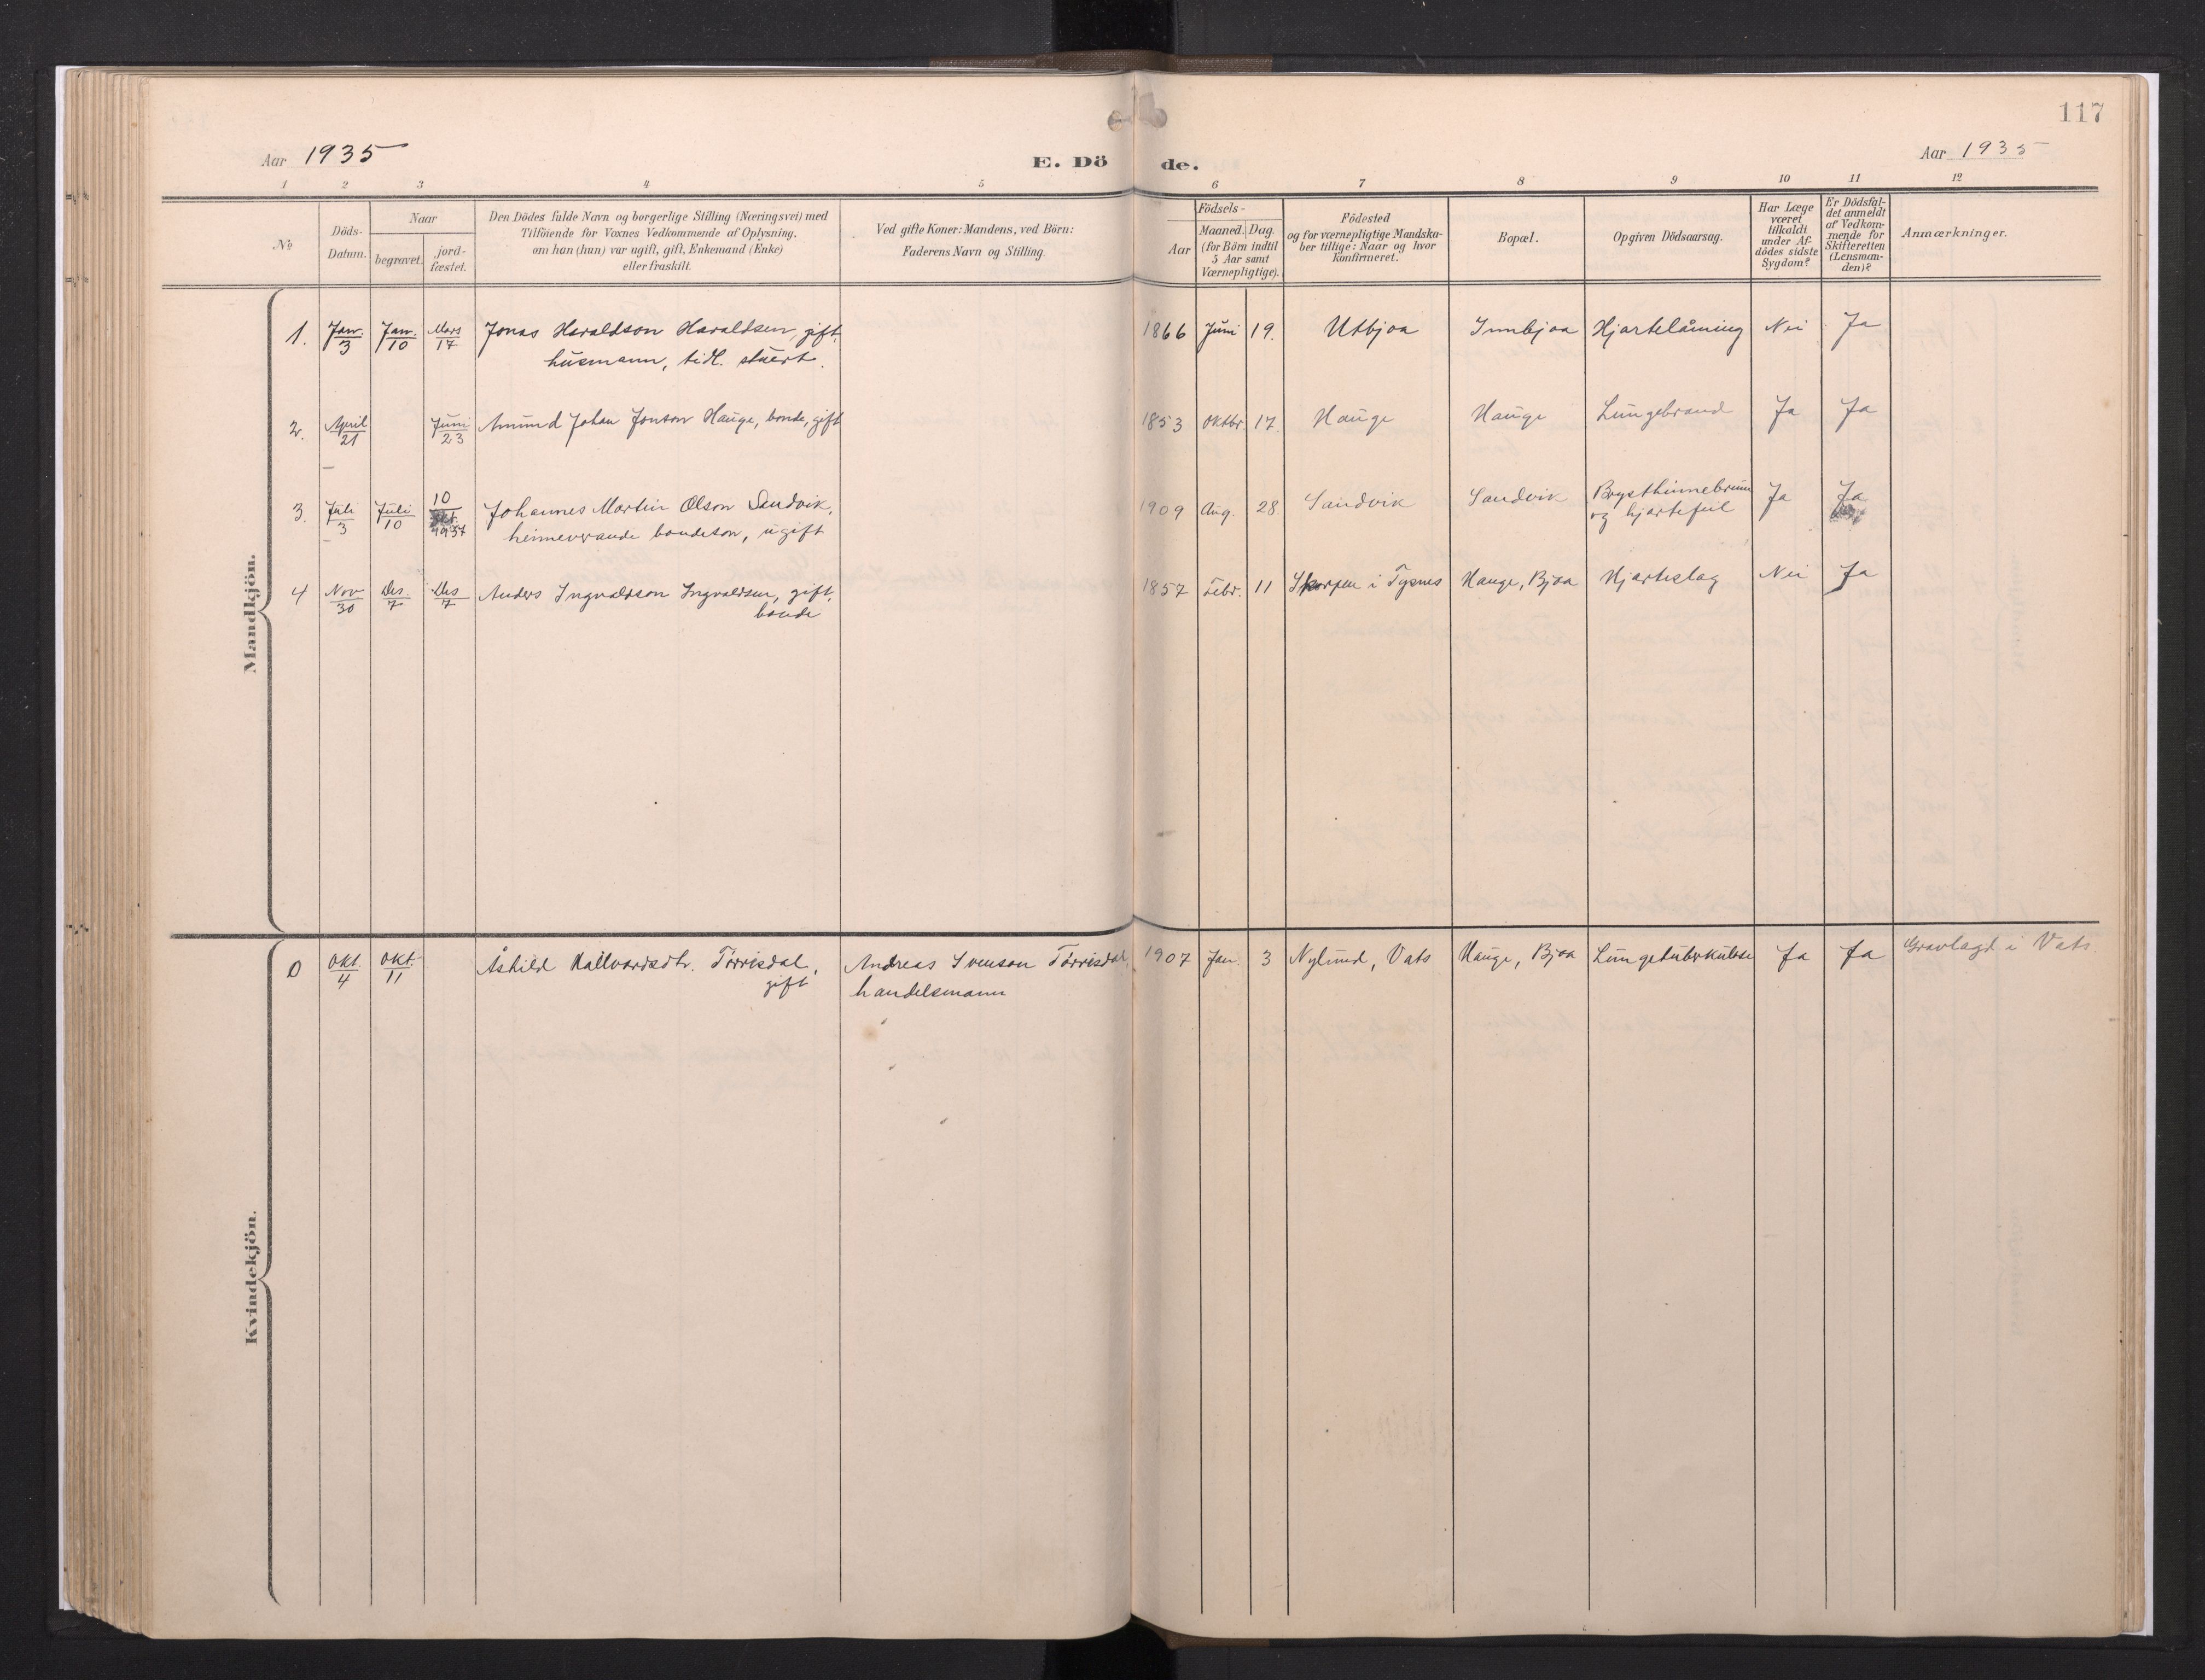 117
Aar 1935
E. Dö de.
Aar 1935
1 2 3 4 5 6 7 8 9 10 11 12
№
Döds-
Datum.
Naar
begravet.
jord-
fæstet.
Den Dödes fulde Navn og borgerlige Stilling (Næringsvei) med
Tilföiende for Voxnes Vedkommende af Oplysning,
om han (hun) var ugift, gift, Enkemand (Enke)
eller fraskilt.
Ved gifte Koner: Mandens, ved Börn:
Faderens Navn og Stilling.
Födsels-
Aar
Maaned. Dag.
(for Börn indtil
5 Aar samt
Værnepligtige).
Födested
og for værnepligtige Mandska-
ber tillige: Naar og hvor
konfirmeret.
Bopæl.
Opgiven Dödsaarsag.
Har Læge
været
tilkaldt
under Af-
dödes sidste
Sygdom?
Er Dödsfal-
det anmeldt
af Vedkom-
mende for
Skifteretten
(Lensman-
den)?
Anmærkninger.
Mandkjön.
1. Jan. 3 Jan. 10 Mars 17 Jonas Haraldson Haraldsen, gift, 1866 Juni 19. Utbjoa Innbjoa Hjartelåming Nei Ja
husmann, tidl. stuert.
2. April 21 Juni 23 Amund Johan Jonson Hauge, bonde, gift 1853 Oktbr. 17. Hauge Hauge Lungebrand Ja Ja
3. Juli 3 Juli 10 10 1937 Johannes Martin Olson Sandvik, 1909 Aug. 28 Sandvik Sandvik Brysthinnebrunn Ja Ja
heimeverande bondeson, ugift og hjartefeil
4 Nov 30 Des. 7 Des 7 Anders Ingvaldson Ingvaldsen, gift, 1857 Febr. 11 Skorpen i Tysnes Hauge, Bjoa Hjarteslag Nei Ja
bonde
Kvindekjön.
0 Okt. 4 Okt. 11 Åshild Hallvardsdtr. Tørrisdal, Andreas Svenson Tørrisdal, 1907 Jan. 3 Nylund, Vats Hauge, Bjoa Lungetuberkulose Ja Ja Gravlagd i Vats
gift handelsmann